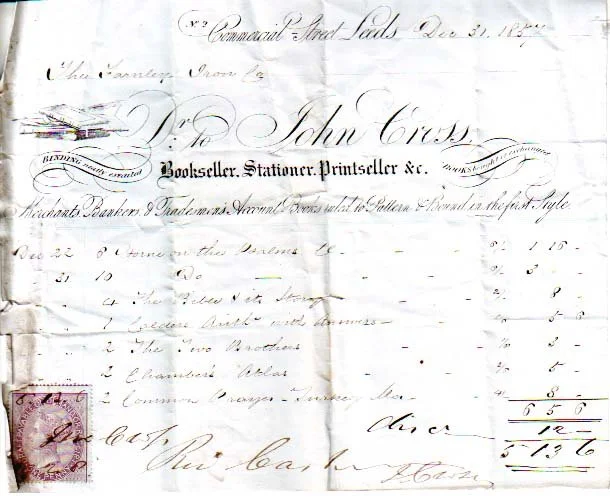 No 2
Commercial Street Leeds Dec 31. 185
The Farnley Iron Co
Dr. to John Cross.
BINDING neatly executed
BOOKS bought & exchanged
Bookseller, Stationer, Printseller &c.
Merchants, Bankers & Tradesmens Account Books ruled to Pattern & Bound in the first Style
Dec 22 8 Horne on the Psalms 1 16 -
" 31 10 Do - - - 3 -
" " 4 The Bible & its Story - - 8 -
" " 1 Arith. with Answers - - 5 6
" " 2 The Two Brothers - - -
" " 2 Chambers Atlas - - 5 -
2 Common Prayer - Turkey Mor 8 -
6 5 6
disc 12 -
5 13 6
Cash